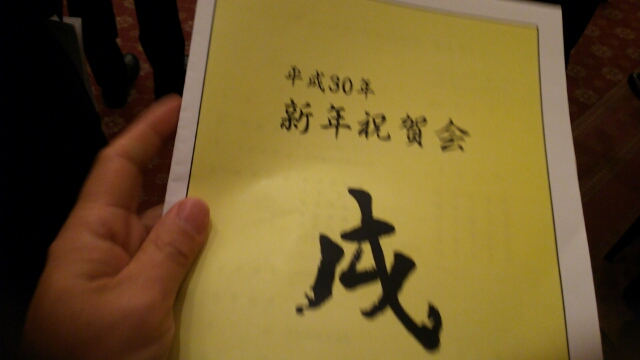 平成30年
新年祝賀会
戌